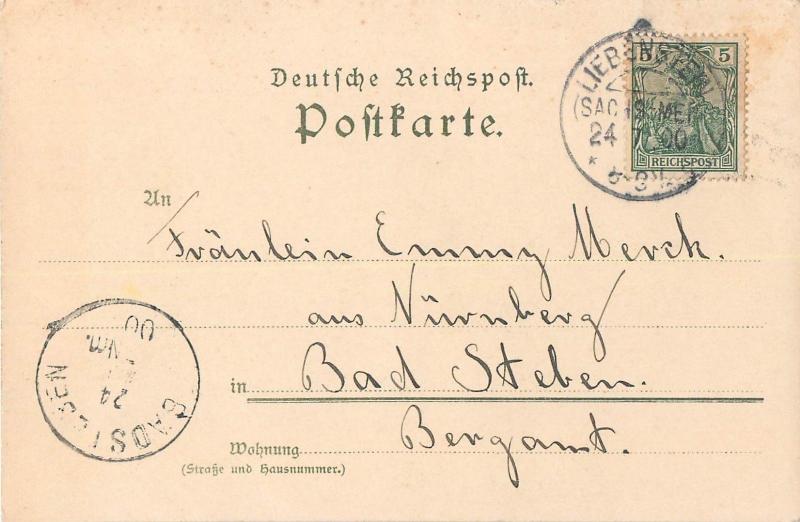 Deutsche Reichspost.
Postkarte.
5 5
REICHSPOST
LIEBENSTEIN
(SACHS. MEI
24 00
An
Fräulein Emmy Merck.
aus Nürnberg
in Bad Steben.
Wohnung Bergamt.
(Straße und Hausnummer.)
BAD STEBEN
24
Nm.
00